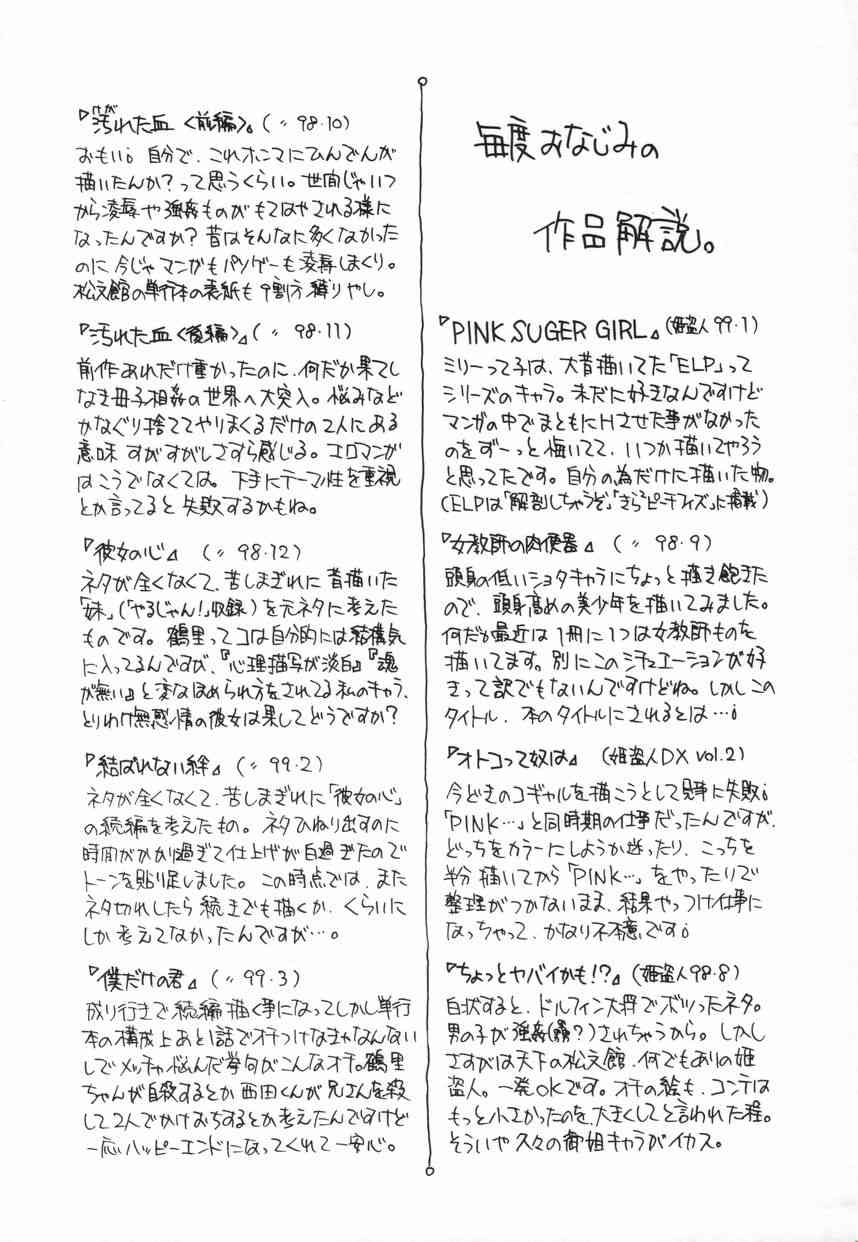 毎度おなじみの
作品解説。
『PINK SUGER GIRL』(姫盗人 99・1)
ミリーって子は、大昔描いてた「ELP」って
シリーズのキャラ。未だに好きなんですけど
マンガの中でまともにHさせた事がなかった
のをずーっと悔いてて、いつか描いてやろう
と思ってたです。自分の為だけに描いた物。
(ELPは「解剖しちゃうぞ」「きらきらピーチフィズ」に掲載)
『女教師の肉便器』(〃 98・9)
頭身の低いショタキャラにちょっと描き飽きた
ので、頭身高めの美少年を描いてみました。
何だか最近は1冊に1つは女教師ものを
描いてます。別にこのシチュエーションが好
きって訳でもないんですけどね。しかしこの
タイトル、本のタイトルにされるとは…!
『オトコって奴は』(姫盗人DX vol.2)
今どきのコギャルを描こうとして見事に失敗!
「PINK…」と同時期の仕事だったんですが、
どっちをカラーにしようか迷ったり、こっちを
半分描いてから「PINK…」をやったりで
整理がつかないまま、結果やっつけ仕事に
なっちゃって、かなり不本意です!
『ちょっとヤバイかも!?』(姫盗人98・8)
白状すると、ドルフィン大将でボツったネタ。
男の子が強姦(?)されちゃうから。しかし
さすがは天下の松文館、何でもありの姫
盗人。一発OKです。オチの絵も、コンテは
もっと小さかったのを、大きくしてと言われた程。
そういや久々の御姐キャラがイカス。
『汚れた血〈前編〉』(〃 98・10)
おもい! 自分で、これホンマにひんでんが
描いたんか?って思うくらい。世間じゃいつ
から凌辱や強姦ものがもてはやされる様に
なったんですか? 昔はそんなに多くなかった
のに今じゃマンガもパソゲーも凌辱しまくり。
松文館の単行本の表紙も9割方縛りやし。
『汚れた血〈後編〉』(〃 98・11)
前作あれだけ重かったのに、何だか果てし
なき母子相姦の世界へ大突入。悩みなど
かなぐり捨ててやりまくるだけの2人にある
意味すがすがしさすら感じる。エロマンガ
はこうでなくては。下手にテーマ性を重視
とか言ってると失敗するかもね。
『彼女の心』(〃 98・12)
ネタが全くなくて、苦しまぎれに昔描いた
「妹」(「やるじゃん!」収録)を元ネタに考えた
ものです。鶴里ってコは自分的には結構気
に入ってるんですが、『心理描写が淡白』『魂
が無い』と変なほめられ方をされてる私のキャラ、
とりわけ無感情の彼女は果してどうですか?
『結ばれない絆』(〃 99・2)
ネタが全くなくて、苦しまぎれに「彼女の心」
の続編を考えたもの。ネタひねり出すのに
時間がかかり過ぎて仕上げが白過ぎたので
トーンを貼り足しました。この時点では、また
ネタ切れしたら続きでも描くか、くらいに
しか考えてなかったんですが…。
『僕だけの君』(〃 99・3)
成り行きで続編描く事になってしかし単行
本の構成上あと1話でオチつけなきゃなんない
しでメッチャ悩んだ挙句がこんなオチ。鶴里
ちゃんが自殺するとか西田くんが兄さんを殺
して2人でかけおちするとか考えたんですけど
一応ハッピーエンドになってくれて一安心。